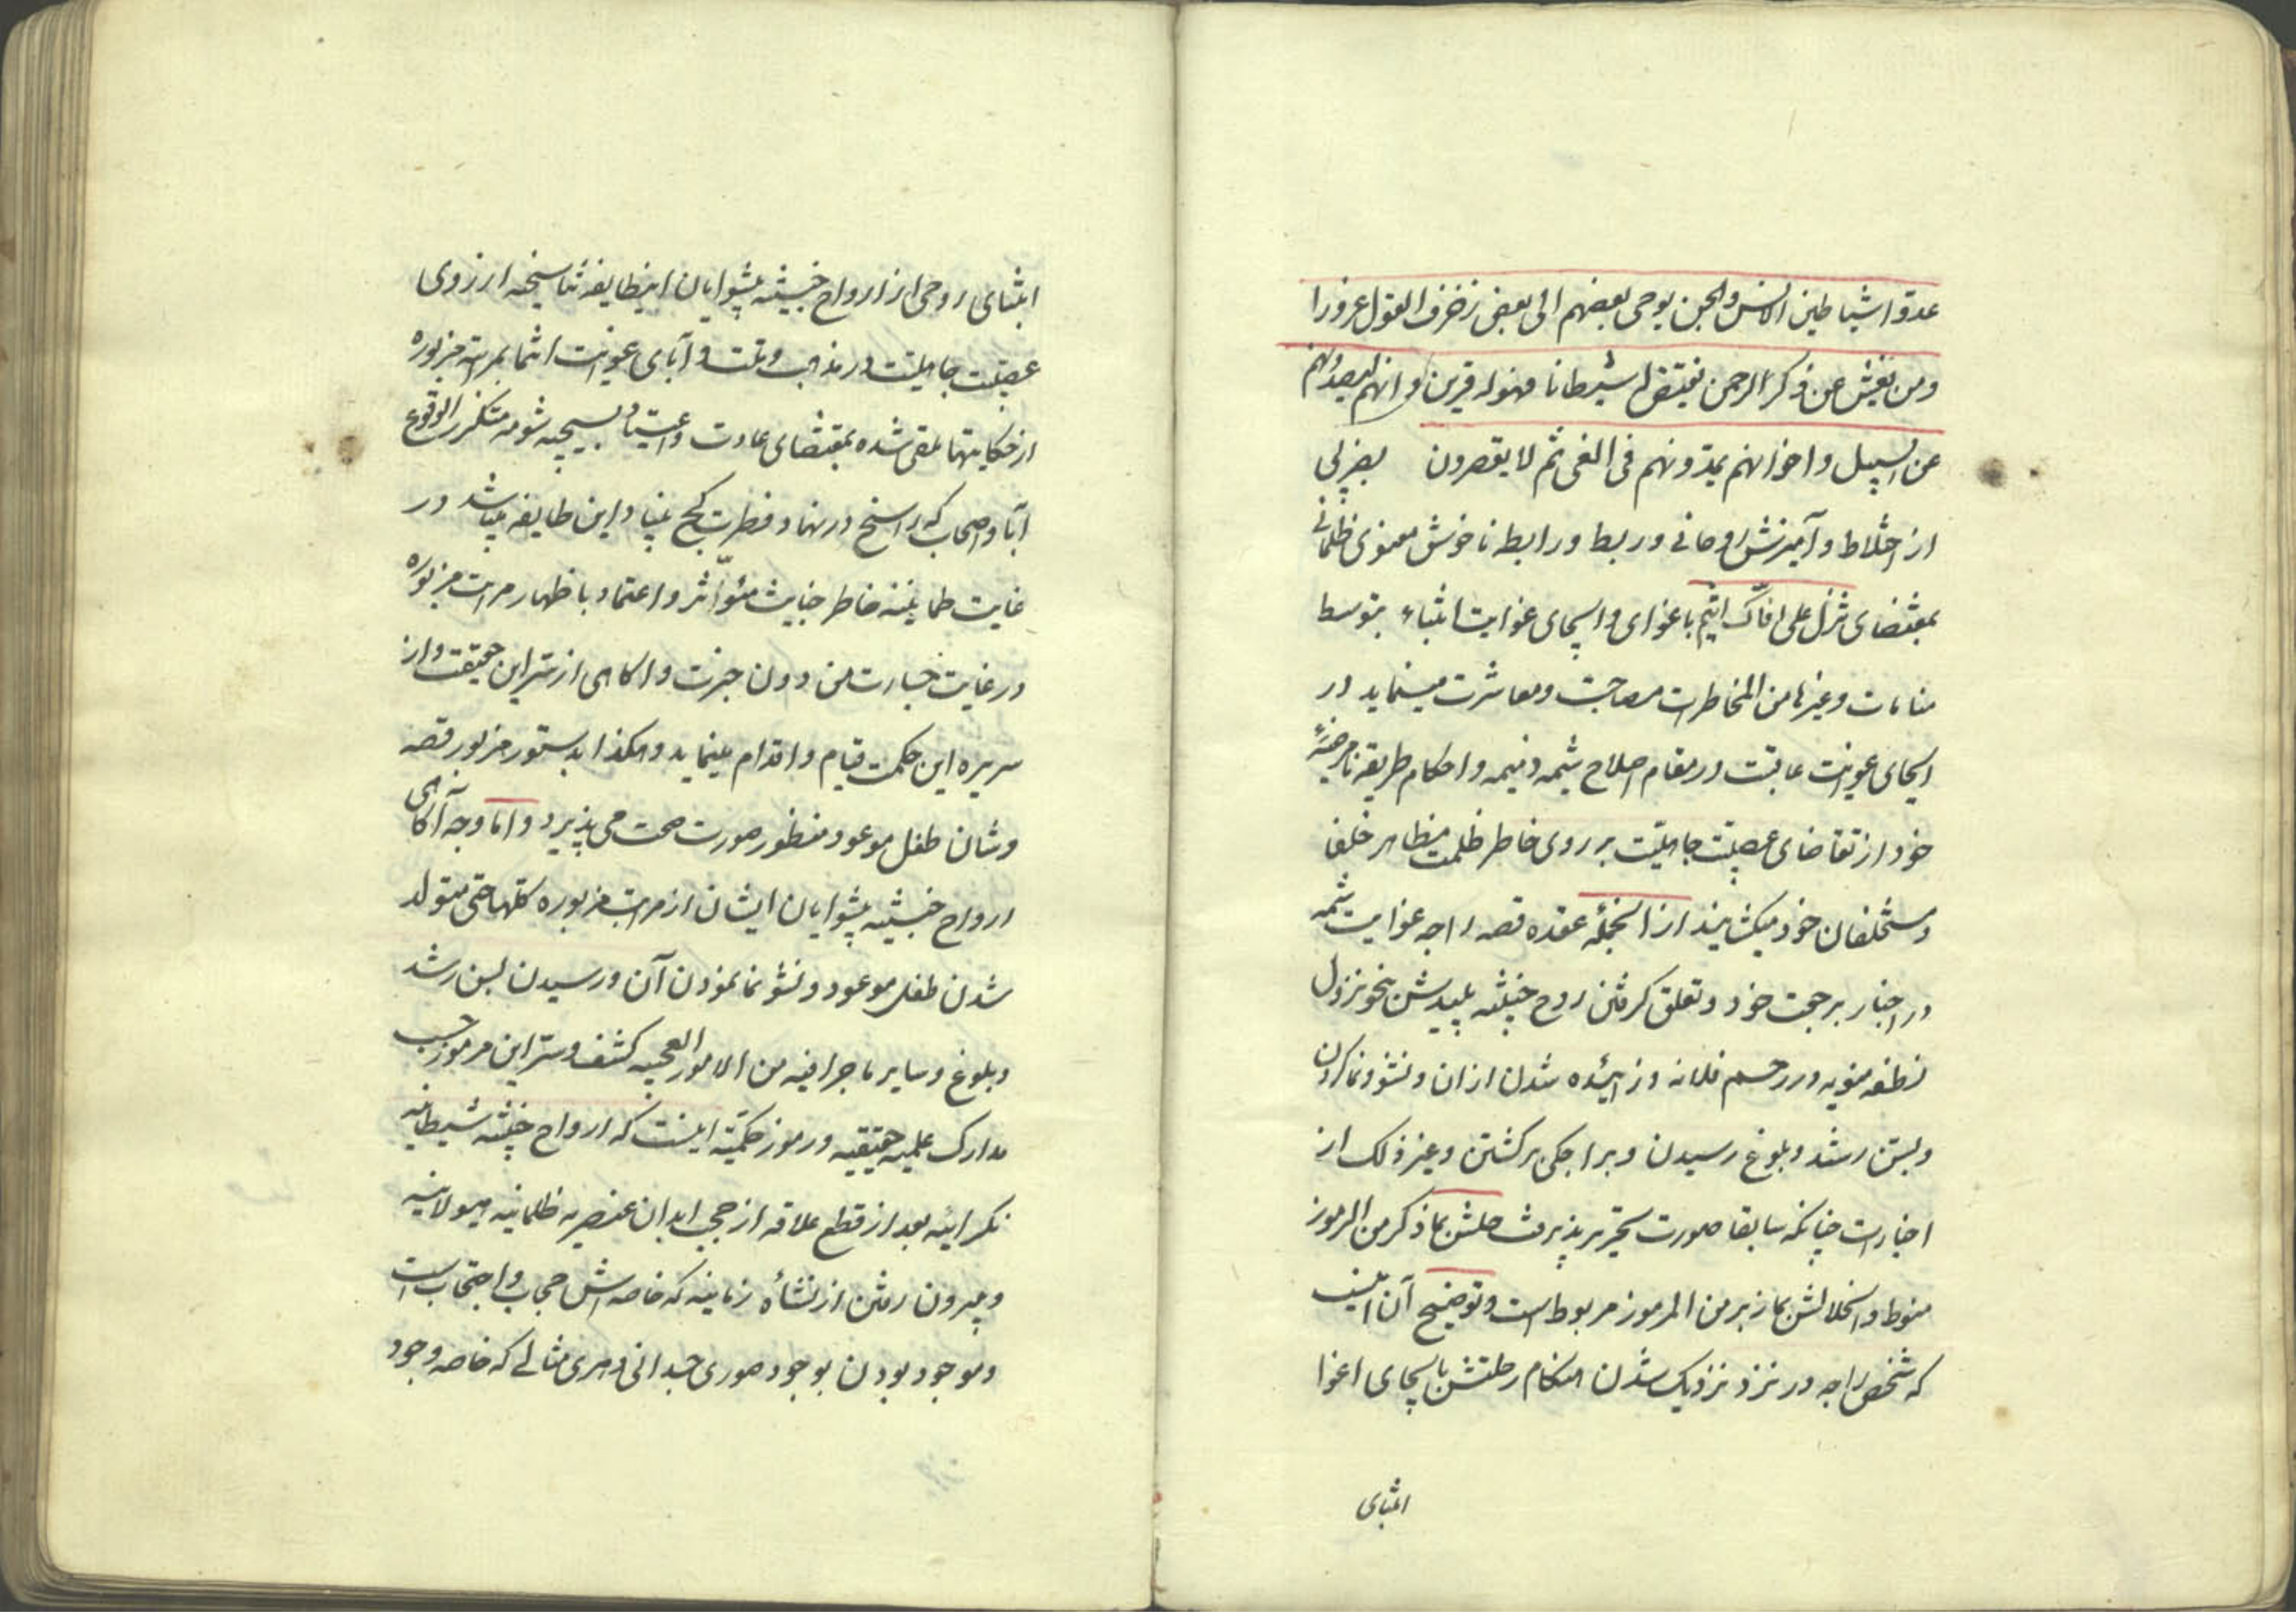 عدوا شیاطین الانس والجن یوحی بعضهم الی بعض زخرف القول غرورا
ومن یعش عن ذکر الرحمن نقیض له شیطانا فهو له قرین و انهم لیصدونهم
عن السبیل واخوانهم یمدونهم فی الغی ثم لا یقصرون بضربی
از اختلاط و آمیزش روحانی و ربط و رابطه ناخوش معنوی ظلمانی
بمقتضای تنزل علی افاک اثیم باغوای و ایحای غوایت انتباء بتوسط
منامات وغیرها من المخاطرات مصاحبت ومعاشرت مینماید در
ایحای غوایت عاقبت در مقام اصلاح شیمه ذمیمه و احکام طریقه نامرضیهٔ
خود از تقاضای عصبیت جاهلیت بر روی خاطر ظلمت مظاهر خلفا
ومستخلفان خود میکشایند از انجمله عقده قصه راجه غوایت شیمه
در اخبار بر رجعت خود و تعلق کرفتن روح خبیثه پلیدش بنحو نزول
نطفه منویه در رحم فلانه و زائیده شدن ازان و نشو و نما کردن
و بسن رشد و بلوغ رسیدن و براجکی برکشتن وغیر ذلک از
اخبارات چنانکه سابقا صورت تحریر پذیرفت حلش بما ذکر من الرموز
منوط و انحلالش بما زبر من المرموز مربوط است و توضیح آن اینست
که شخص راجه در نزد نزدیک شدن هنکام رحلتش بایحای اغوا
انتبای
انتبای روحی از ارواح خبیثه پیشوایان اینطایفه تناسخیه از روی
عصبیت جاهلیت در مذهب و ملت و آبای غوایت انتما بمراتب مزبوره
از حکایتها ملقی شده بمقتضای عادت و اعتیاد سجیه شومه متکرر الوقوع
آبا و اصحاب که راسخ در نهاد فطرت کج بنیاد این طایفه میباشد در
غایت طمانینه خاطر خباثت مؤاثر و اعتماد باظهار مراتب مزبوره
در غایت جسارت من دون خبرت و اکاهی از سر این حقیقت و از
سریره این حکمت قیام و اقدام مینماید و هکذا بدستور مزبور قصه
وشان طفل موعود منظور صورت صحت می پذیرد و اما وجه آکاهی
ارواح خبیثه پیشوایان ایشان از مراتب مزبوره کلها حتی متولد
شدن طفل موعود و نشو نما نمودن آن و رسیدن بسن رشد
و بلوغ و سایر ما جرا فیه من الامور العجیبه کشف و ستر این مرموز حسب
مدارک علمیه حقیقیه و رموز حکمیّه اینست که ارواح خبیثه شیطانیه
نکرائیه بعد از قطع علاقه از حجب ابدان عنصریه ظلمانیه هیولانیه
و بیرون رفتن از نشأه زمانیه که خاصه اش حجاب و احتجاب است
و موجود بودن بوجود صوری جبدانی دهری مثالی که خاصه وجود